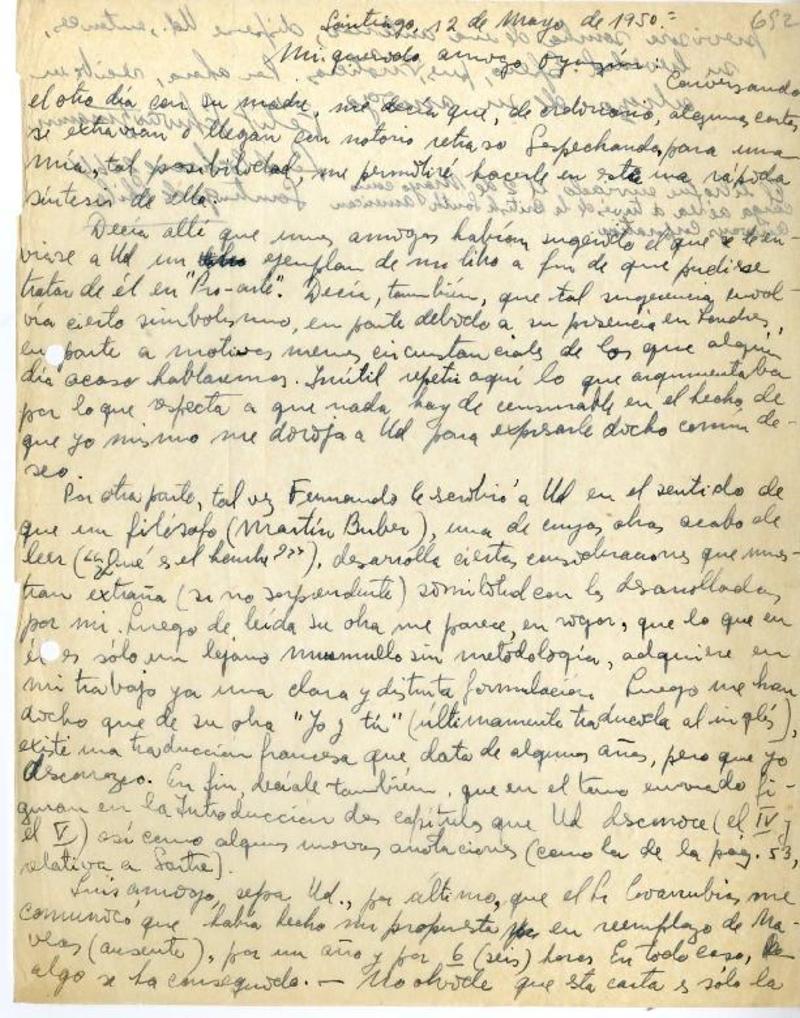 692
Santiago, 12 de Mayo de 1950.=
Mi querido amigo Oyarzún: Conversando
el otro día con su madre, me decía que, de ordinario, algunas cartas
se extravían o llegan con notorio retraso. Sospechando, para una
mía, tal posibilidad, me permitiré hacerle en esta una rápida
síntesis de ella:
Decía allí que unos amigos habían sugerido el que se le en-
viase a Ud un ejemplar de mi libro a fin de que pudiese
tratar de él en "Pro-arte". Decía, también, que tal sugerencia envol-
vía cierto simbolismo, en parte debido a su presencia en Londres,
en parte a motivos menos circunstanciales de los que algún
día acaso hablaremos. Inútil repetir aquí lo que argumentaba
por lo que respecta a que nada hay de censurable en el hecho de
que yo mismo me dirija a Ud para expresarle dicho común de-
seo.
Por otra parte, tal vez Fernando le escribió a Ud en el sentido de
que un filósofo (Martín Buber), una de cuyas obras acabo de
leer ("¿Qué es el hombre?"), desarrolla ciertas consideraciones que mues-
tran extraña (si no sorprendente) similitud con las desarrolladas
por mí. Luego de leída su obra me parece, en rigor, que lo que en
él es sólo un lejano murmullo sin metodología, adquiere en
mi trabajo ya una clara y distinta formulación. Luego me han
dicho que de su obra "Yo y tú" (últimamente traducida al inglés),
existe una traducción francesa que data de algunos años, pero que yo
desconozco. En fin, decíale también, que en el tomo enviado fi-
guran en la Introducción dos capítulos que Ud desconoce (el IV y
el V) así como algunas nuevas anotaciones (como la de la pág. 53,
relativa a Sartre).
Luis amigo, sepa Ud., por último, que el Sr Covarrubias me
comunicó que había hecho mi propuesta en reemplazo de Ma-
(ausente), por un año y por 6 (seis) horas. En todo caso,
algo se ha conseguido. — No olvide que esta carta es sólo la